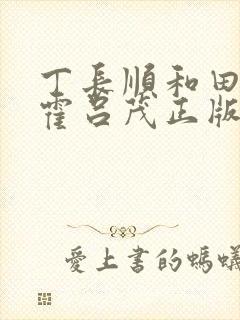 丁長順和田
霍呂茂正版
愛上書的螞蟻